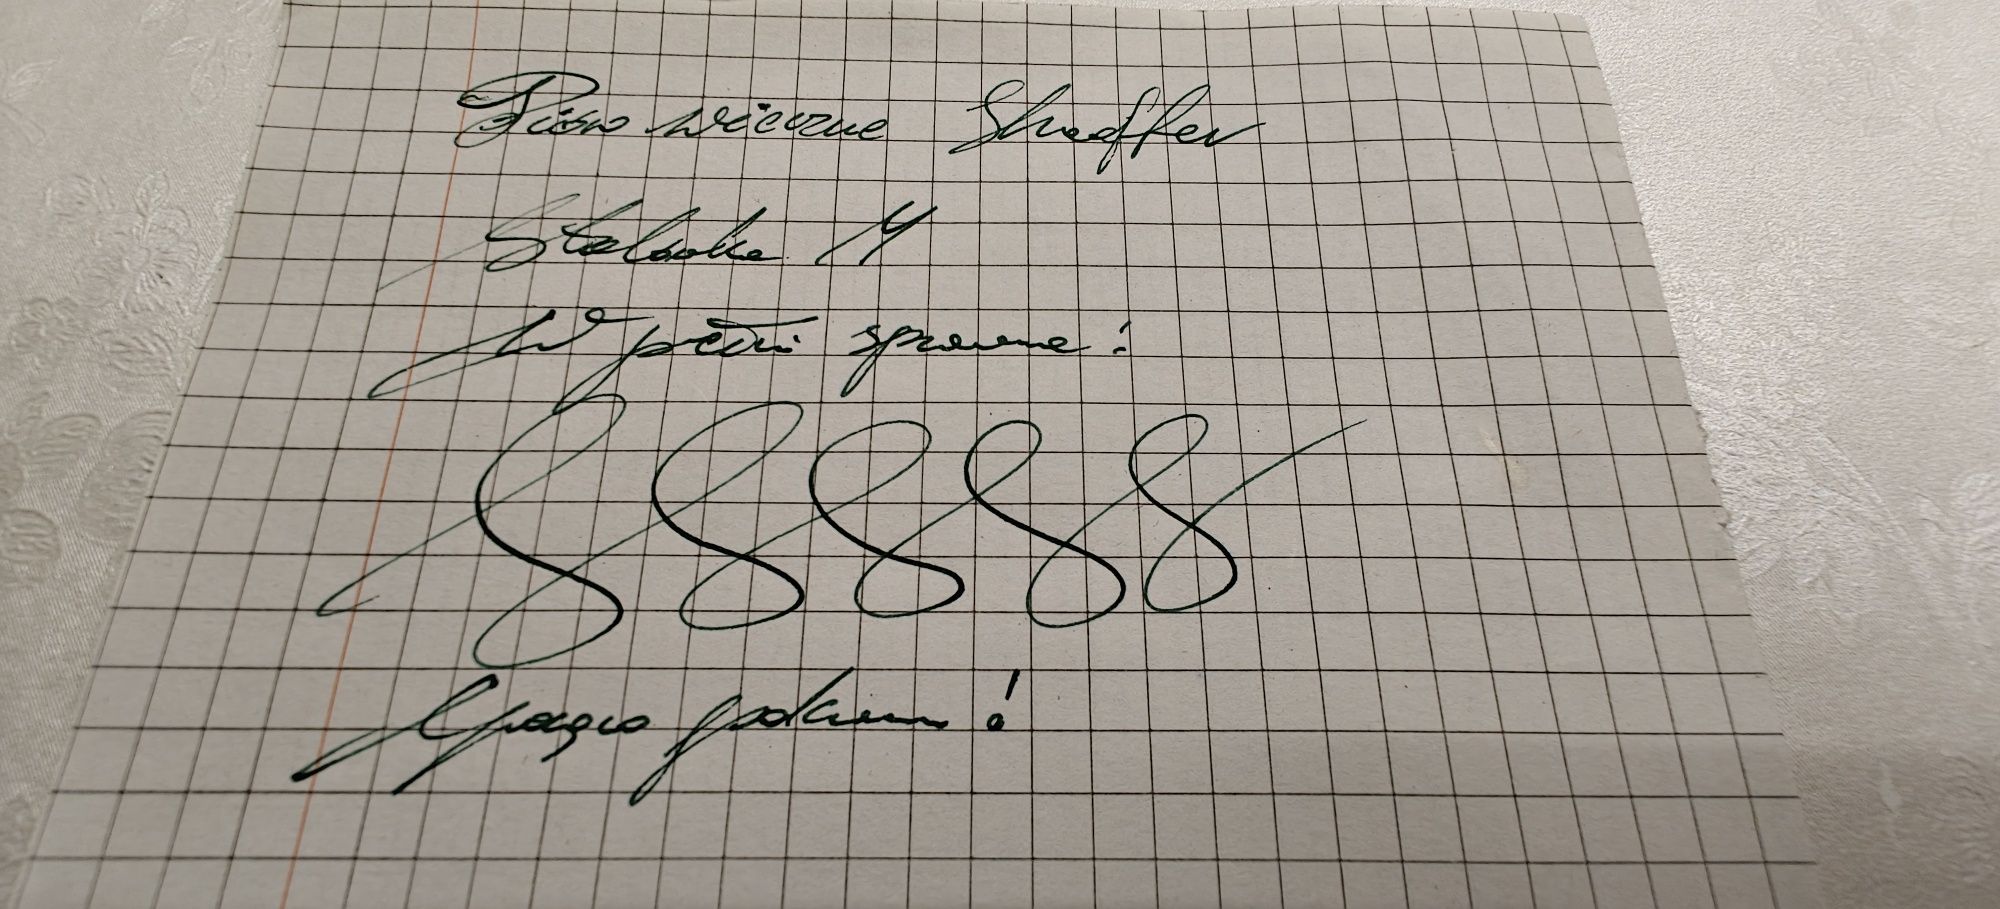 Pióro wieczne Sheaffer
Stalówka M
W pełni sprawne!
8 8 8 8 8
Gorąco polecam!